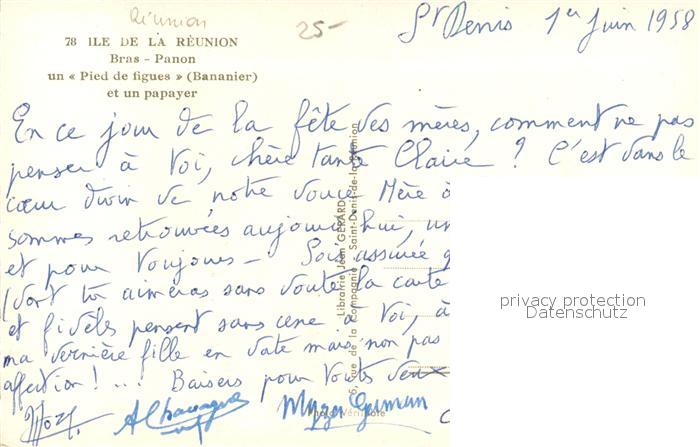 Réunion
25-
St Denis 1er Juin 1958
78 ILE DE LA RÉUNION
Bras - Panon
un « Pied de figues » (Bananier)
et un papayer
En ce jour de la fête des mères, comment ne pas
penser à toi, chère tante Claire ? C'est dans le
cœur divin de notre douce Mère
sommes retrouvées aujourd'hui, un
et pour toujours - Sois assurée q
(dont tu aimeras sans doute la carte
et fidèles pensent sans cesse à toi, à
ma dernière fille en date mais non pas
affection ! ... Baisers pour toutes
Librairie Jean GERARD
6, rue de la Compagnie - Saint-Denis-de-la-Réunion
Photo Véritable
privacy protection
Datenschutz